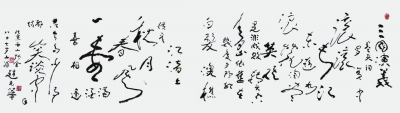 三国演义
滚滚
长江
东逝水
浪花
英雄
是非成败转头空
青山依旧在
几度夕阳红
白发渔樵
江渚上
惯看
秋月
春风
一壶浊酒
喜相逢
古今多少事
都付
笑谈中